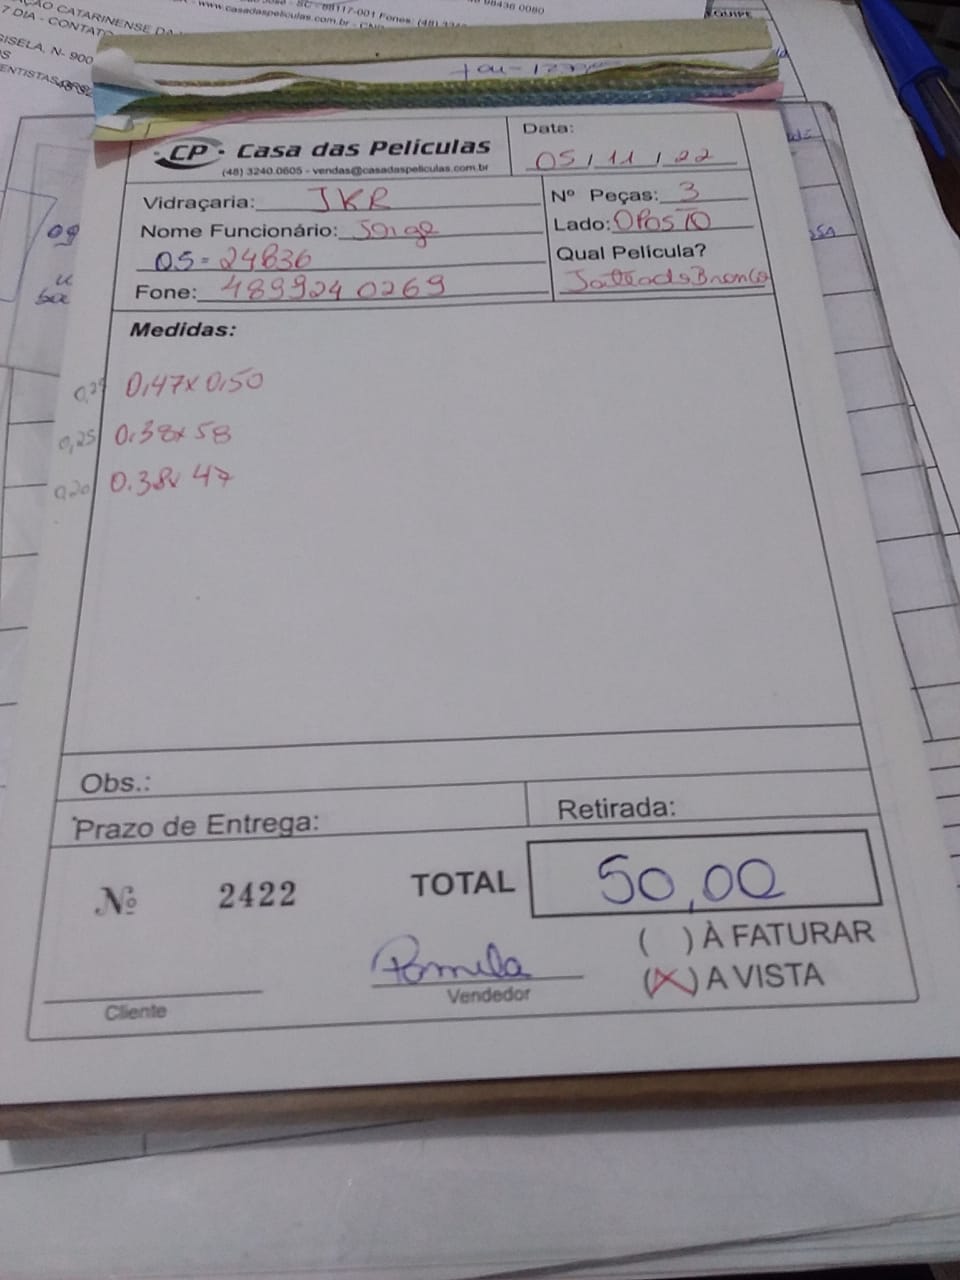 AÇÃO CATARINENSE DA
7 DIA - CONTATO
GISELA, N- 900
www.casadaspeliculas.com.br
SC - 88117-001 Fones: (48)
98436 0080
EQUIPE
CP Casa das Películas
(48) 3240.0605 - vendas@casadaspeliculas.com.br
Data: 05/11/22
Vidraçaria: JKR
Nº Peças: 3
Nome Funcionário: Sorge
Lado: OPOSTO
OS = 24836
Qual Película?
Fone: 4899240269
Jatteado Branco
Medidas:
0,47x0,50
0,25 0.38x58
0,20 0.38x47
Obs.:
Prazo de Entrega:
Retirada:
Nº 2422
TOTAL 50,00
( ) À FATURAR
Pamela
(X) A VISTA
Cliente
Vendedor